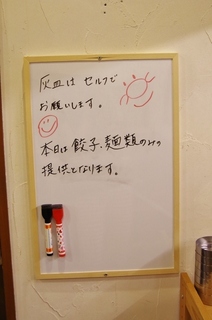 灰皿は セルフで
お願いします。
本日は餃子、麺類のみの
提供となります。